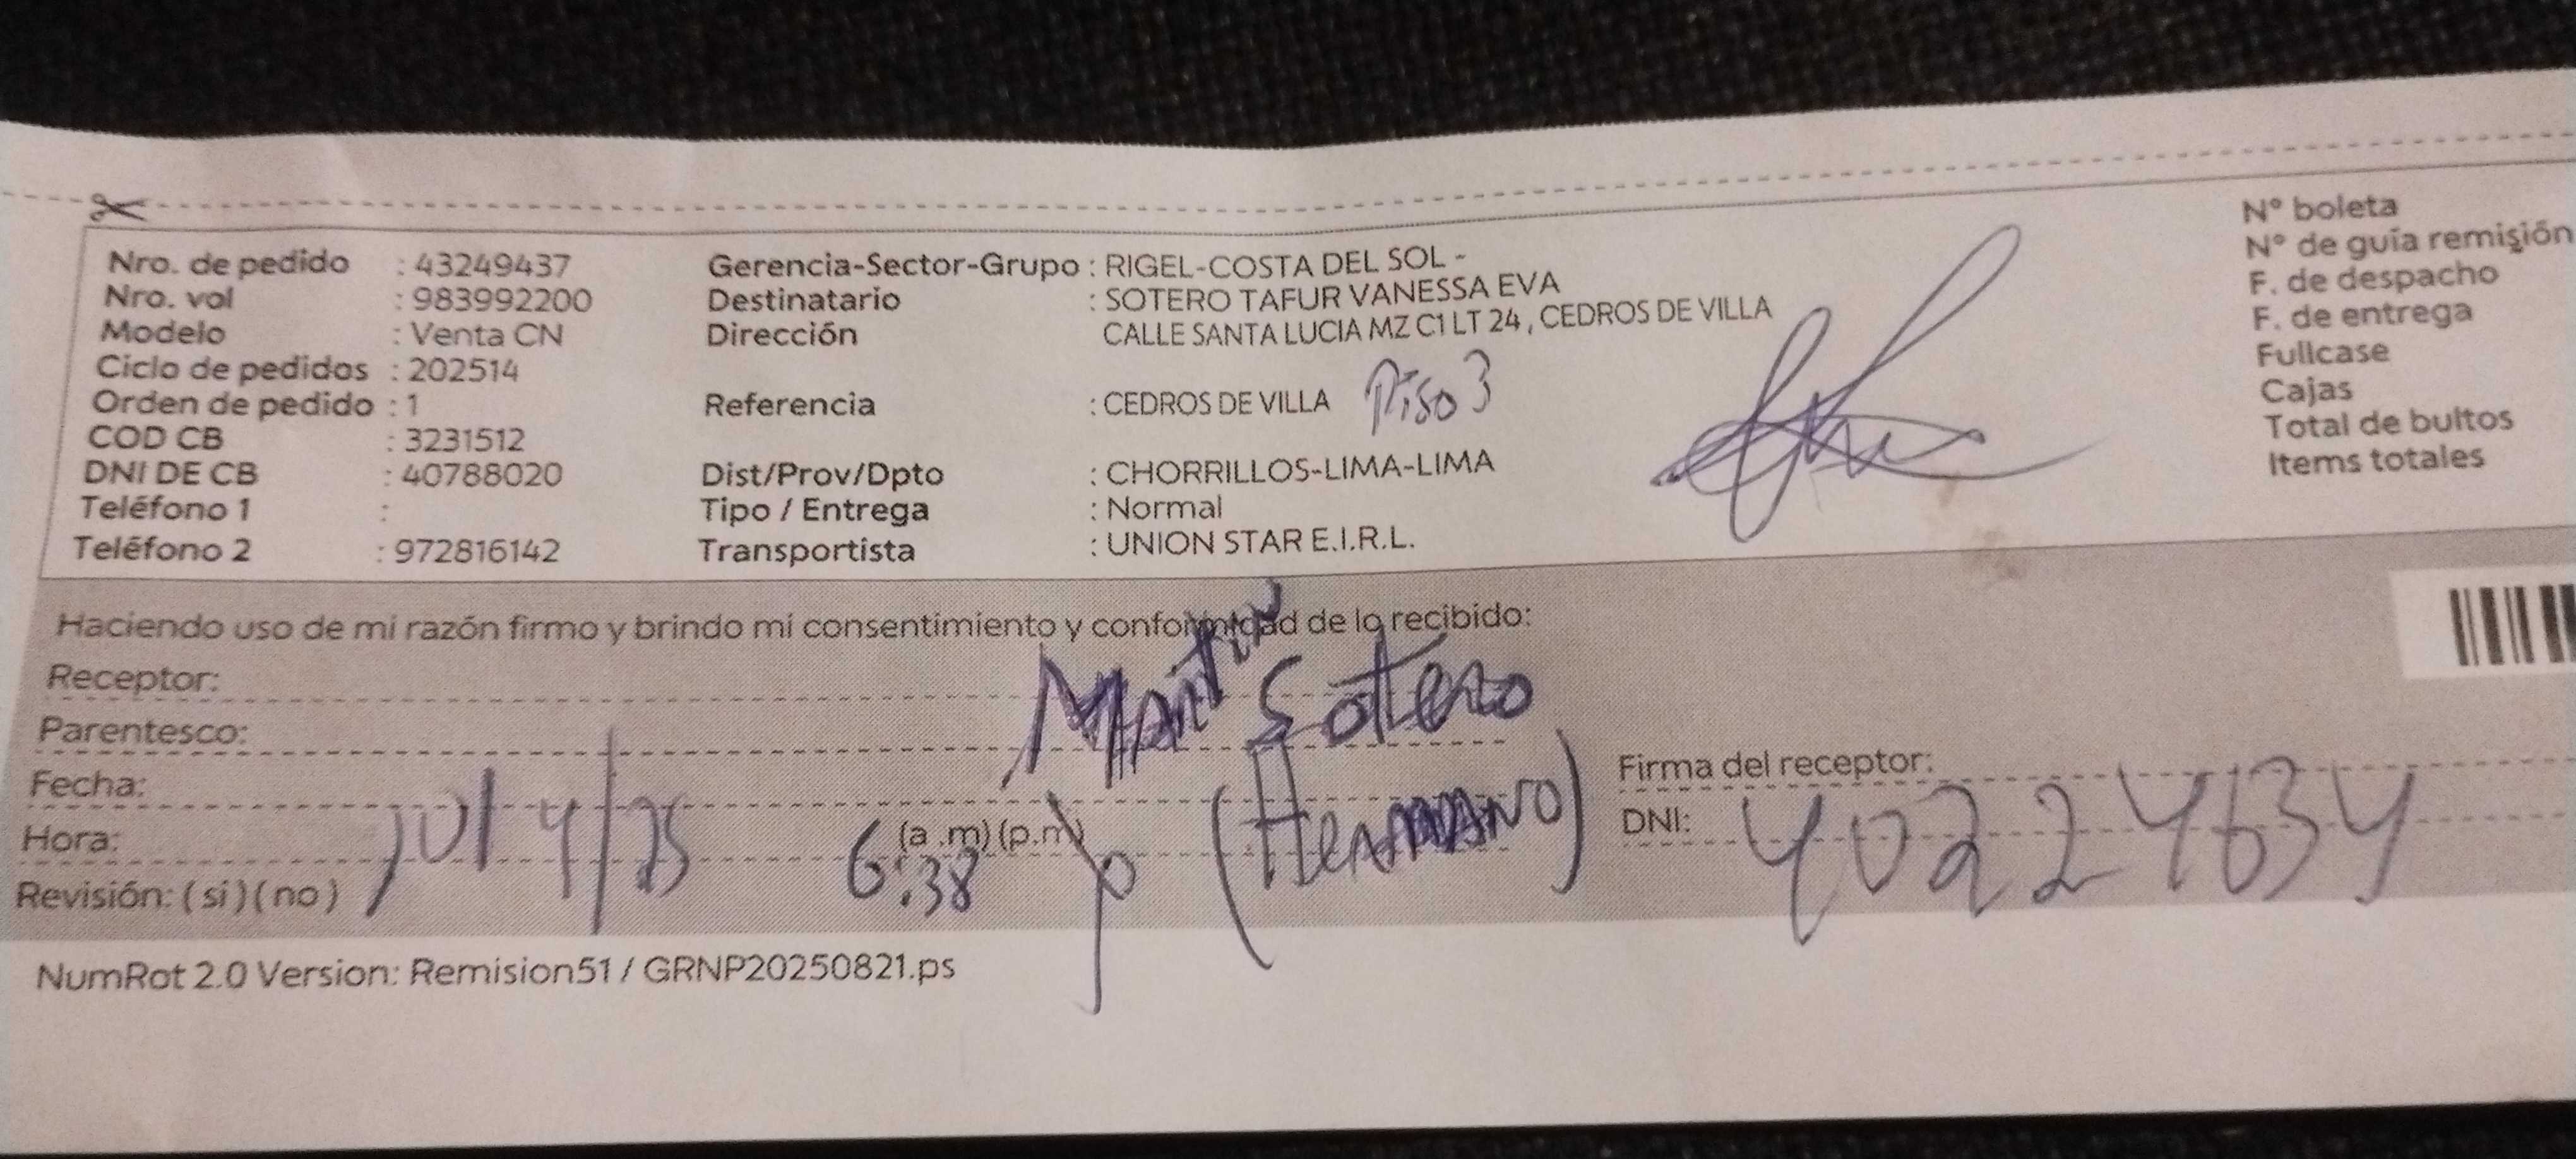 Nro. de pedido : 43249437
Nro. vol : 983992200
Modelo : Venta CN
Ciclo de pedidos : 202514
Orden de pedido : 1
COD CB : 3231512
DNI DE CB : 40788020
Teléfono 1 :
Teléfono 2 : 972816142
Gerencia-Sector-Grupo : RIGEL-COSTA DEL SOL -
Destinatario : SOTERO TAFUR VANESSA EVA
Dirección CALLE SANTA LUCIA MZ C1 LT 24 , CEDROS DE VILLA
Referencia : CEDROS DE VILLA Piso 3
Dist/Prov/Dpto : CHORRILLOS-LIMA-LIMA
Tipo / Entrega : Normal
Transportista : UNION STAR E.I.R.L.
N° boleta
N° de guía remisión
F. de despacho
F. de entrega
Fullcase
Cajas
Total de bultos
Items totales
Haciendo uso de mi razón firmo y brindo mi consentimiento y conformidad de lo recibido:
Receptor: Martin Sotero
Parentesco: (Hermano)
Fecha:
Hora: 6:38 (a .m) (p.m)
Revisión: ( si ) ( no )
Firma del receptor:
DNI: 40224634
NumRot 2.0 Version: Remision51 / GRNP20250821.ps